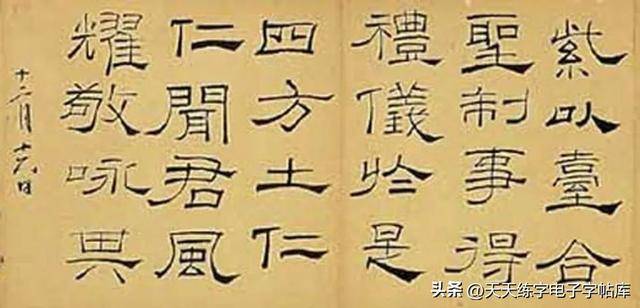 紫以臺合
聖制事得
禮儀於是
四方土仁
仁聞君風
耀敬咏其
十二月十六日
头条 @天天练字电子字帖库